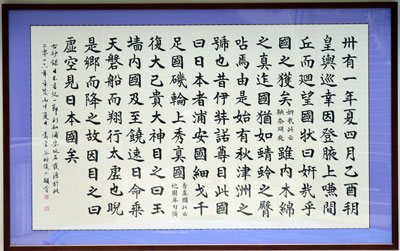 卅有一年夏四月乙酉朔
皇輿巡幸因登腋上嗛間
丘而廻望國狀曰妍哉乎
國之獲矣妍哉此云鞅奈珥夜雖内木綿
之真迮國猶如蜻蛉之臀
呫焉由是始有秋津洲之
號也昔伊弉諾尊目此國
曰日本者浦安國細戈千
足國磯輪上秀真國秀真國此云袍圖莽句儞
復大己貴大神目之曰玉
墻内國及至饒速日命乘
天磐船而翔行太虛也睨
是鄉而降之故因目之曰
虛空見日本國矣